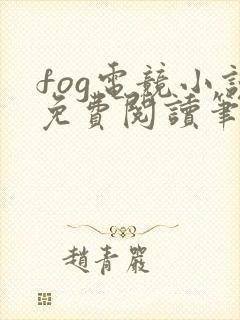 fog電競小說
免費閱讀筆
趙青嚴